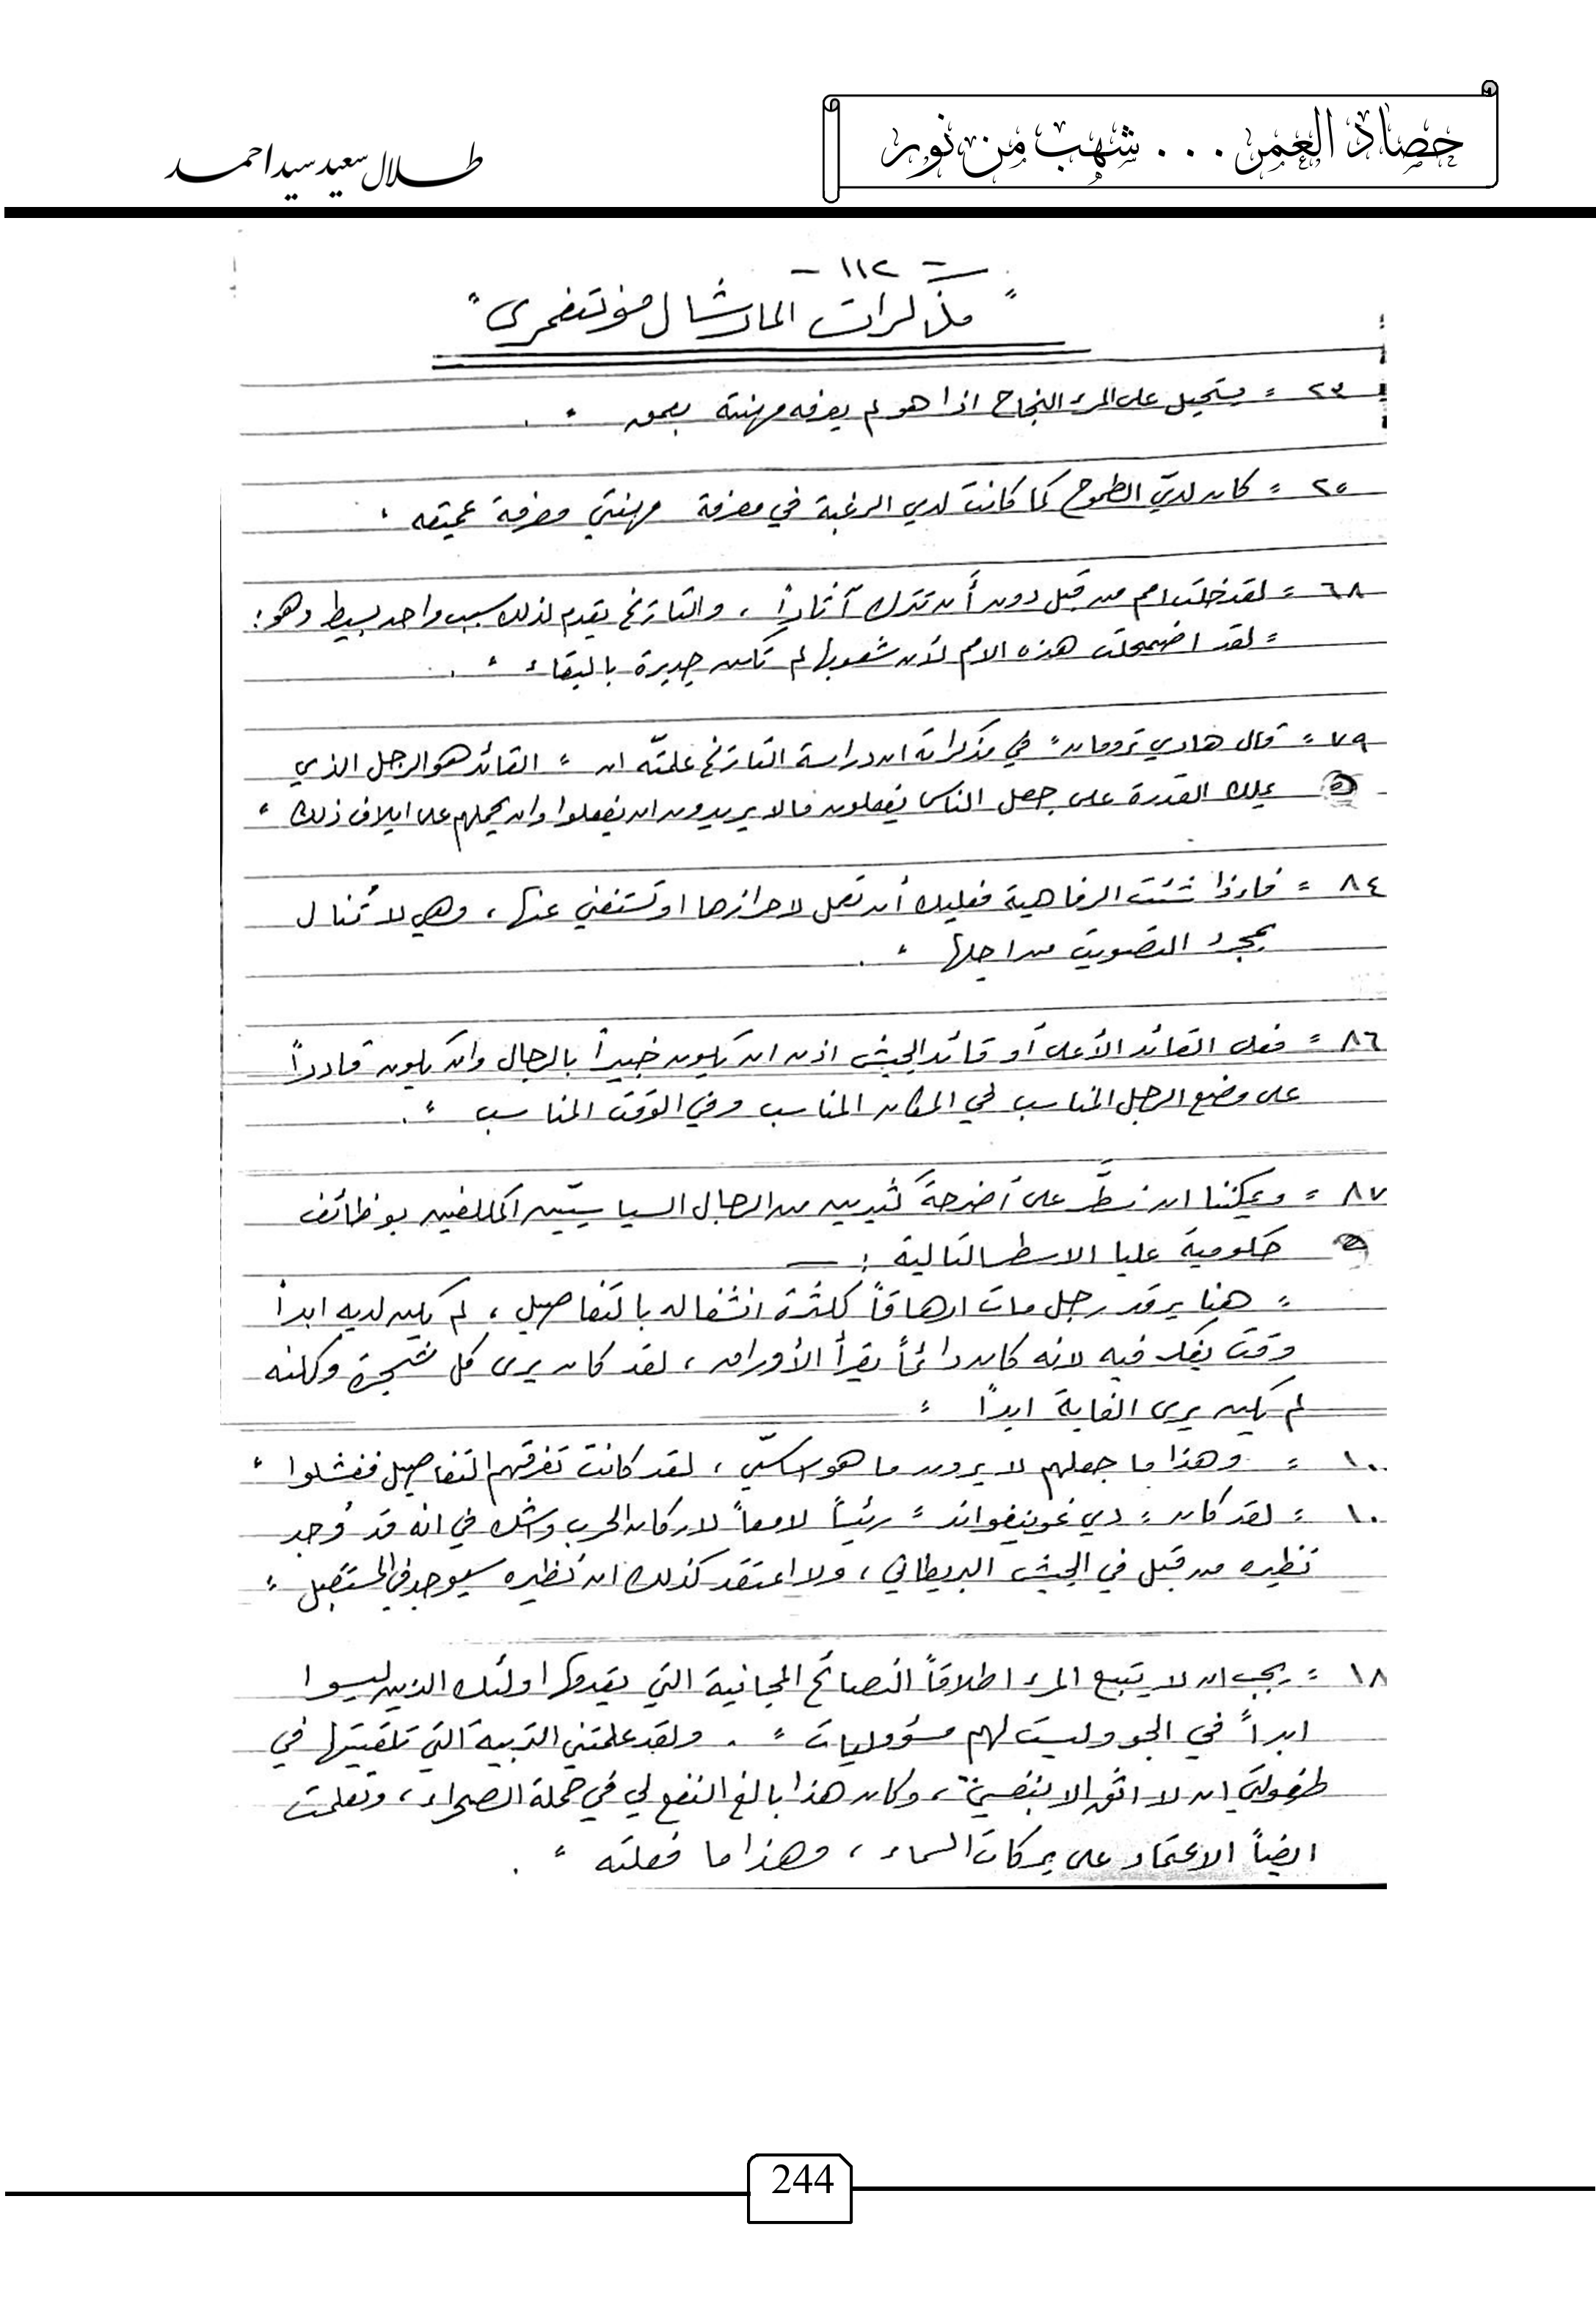 حصاد العمر ... شهب من نور
طلال سعيد سيد احمد
- ١١٢ -
" مذكرات المارشال مونتغمري "
٢٣ " يستحيل على المرء النجاح اذا هو لم يعرف مهنته بعمق " .
٢٥ " كان لديّ الطموح كما كانت لدي الرغبة في معرفة مهنتي معرفة عميقه "
٦٨ " لقد خلت امم من قبل دون أن تترك آثاراً ، والتاريخ يقدم لذلك سبب واحد بسيط وهو :
" لقد اضمحلت هذه الامم لأن شعوبها لم تكن جديرة بالبقاء " .
٧٩ " قال هاري ترومان " في مذكراته ان دراسة التاريخ علمتّه ان " القائد هو الرجل الذي
يملك القدرة على جعل الناس يفعلون ما لا يريدون ان يفعلوا وان يحملهم على ايلاف ذلك "
٨٤ " فاذا شئت الرفاهية فعليك أن تعمل لاحرازها او تستغني عنها ، وهي لا تُنال
بمجرد التصويت من اجلها " .
٨٦ " فعلى القائد الأعلى أو قائد الجيش اذن ان يكون خبيراً بالرجال وان يكون قادراً
على وضع الرجل المناسب في المكان المناسب وفي الوقت المناسب " .
٨٧ " ويمكننا ان نسطَّر على أضرحةَ كثيرين من الرجال السياسيّين المكلفين بوظائف
حكومية عليا الاسطر التالية : —
" هنا يرقد رجل مات ارهاقاً لكثرة انشغاله بالتفاصيل ، لم يكن لديه ابداً
وقت يفكر فيه لانه كان دائماً يقرأ الأوراق ، لقد كان يرى كل شجرة ولكنه
لم يكن يرى الغابة ابداً "
١٠٠ " وهذا ما جعلهم لا يرون ما هو اساسي ، لقد كانت تغرقهم التفاصيل ففشلوا "
١٠ " لقد كان " دي غوينغواند " رئيساً لامعاً لاركان الحرب واشك في انه قد وُجد
نظيره من قبل في الجيش البريطاني ، ولا اعتقد كذلك ان نظيره سيوجد في المستقبل "
١٨ " يجب ان لا يتبع المرء اطلاقاً النصائح المجانية التي يقدمها اولئك الذين ليسوا
ابداً في الجو وليست لهم مسؤوليات " . ولقد علمتني التربية التي تلقيتها في
طفولتي ان لا اثق الا بنفسي ، وكان هذا بالغ النفع لي في حملة الصحراء ، وتعلمت
ايضاً الاعتماد على بركات السماء ، وهذا ما فعلته " .
244